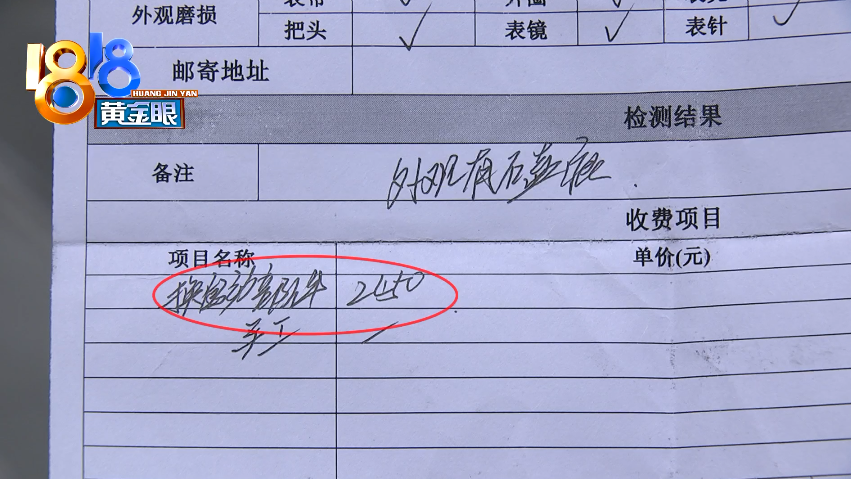 外观磨损
表带 外圈 表壳
把头 表镜 表针
邮寄地址
检测结果
备注 外观有石
收费项目
项目名称 单价(元)
换自动 2450
手工 一
1818
HUANG JIN YAN
黄金眼